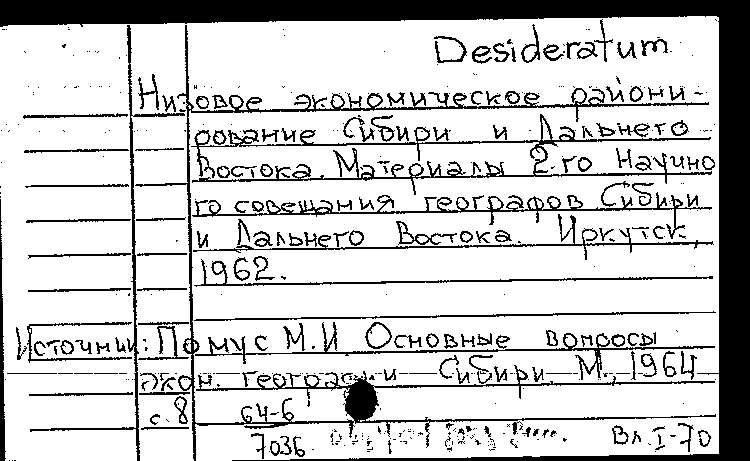 Desideratum
Низовое экономическое райони-
рование Сибири и Дальнего
Востока. Материалы 2-го научно
го совещания географов Сибири
и Дальнего Востока. Иркутск,
1962.
Источник: Помус М.И. Основные вопросы
экон. географии Сибири. М., 1964
с. 8 64-6
7036 Вл. I-70